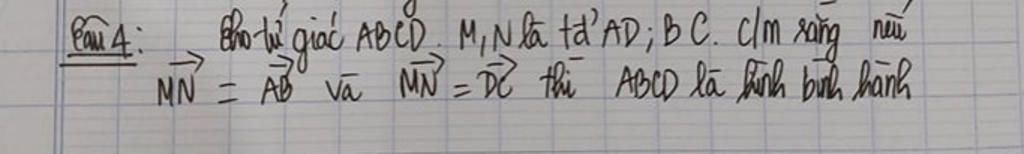 Câu 4: Cho tứ giác ABCD. M, N là tđ' AD; BC. c/m rằng nếu
MN = AB và MN = DC thì ABCD là hình bình hành